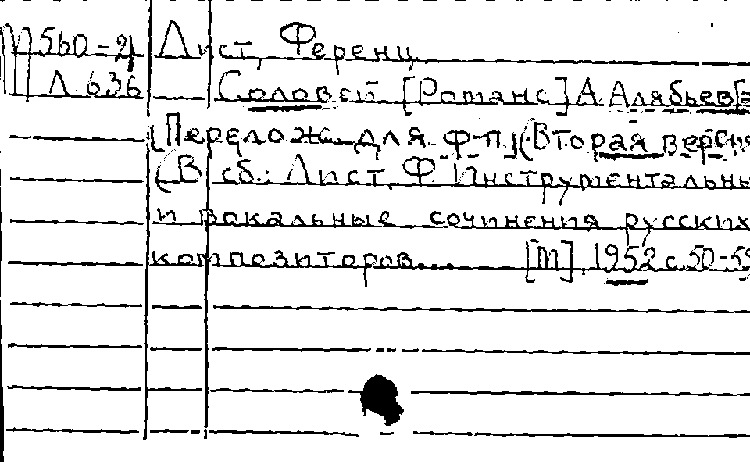 М 560-4 Лист, Ференц
Л 636 Соловей [Романс] А. Алябьева
[Перелож. для ф-п] (Вторая версия
(В сб.: Лист, Ф. Инструментальны
и вокальные сочинения русских
композиторов... [М], 1952 с. 50-59